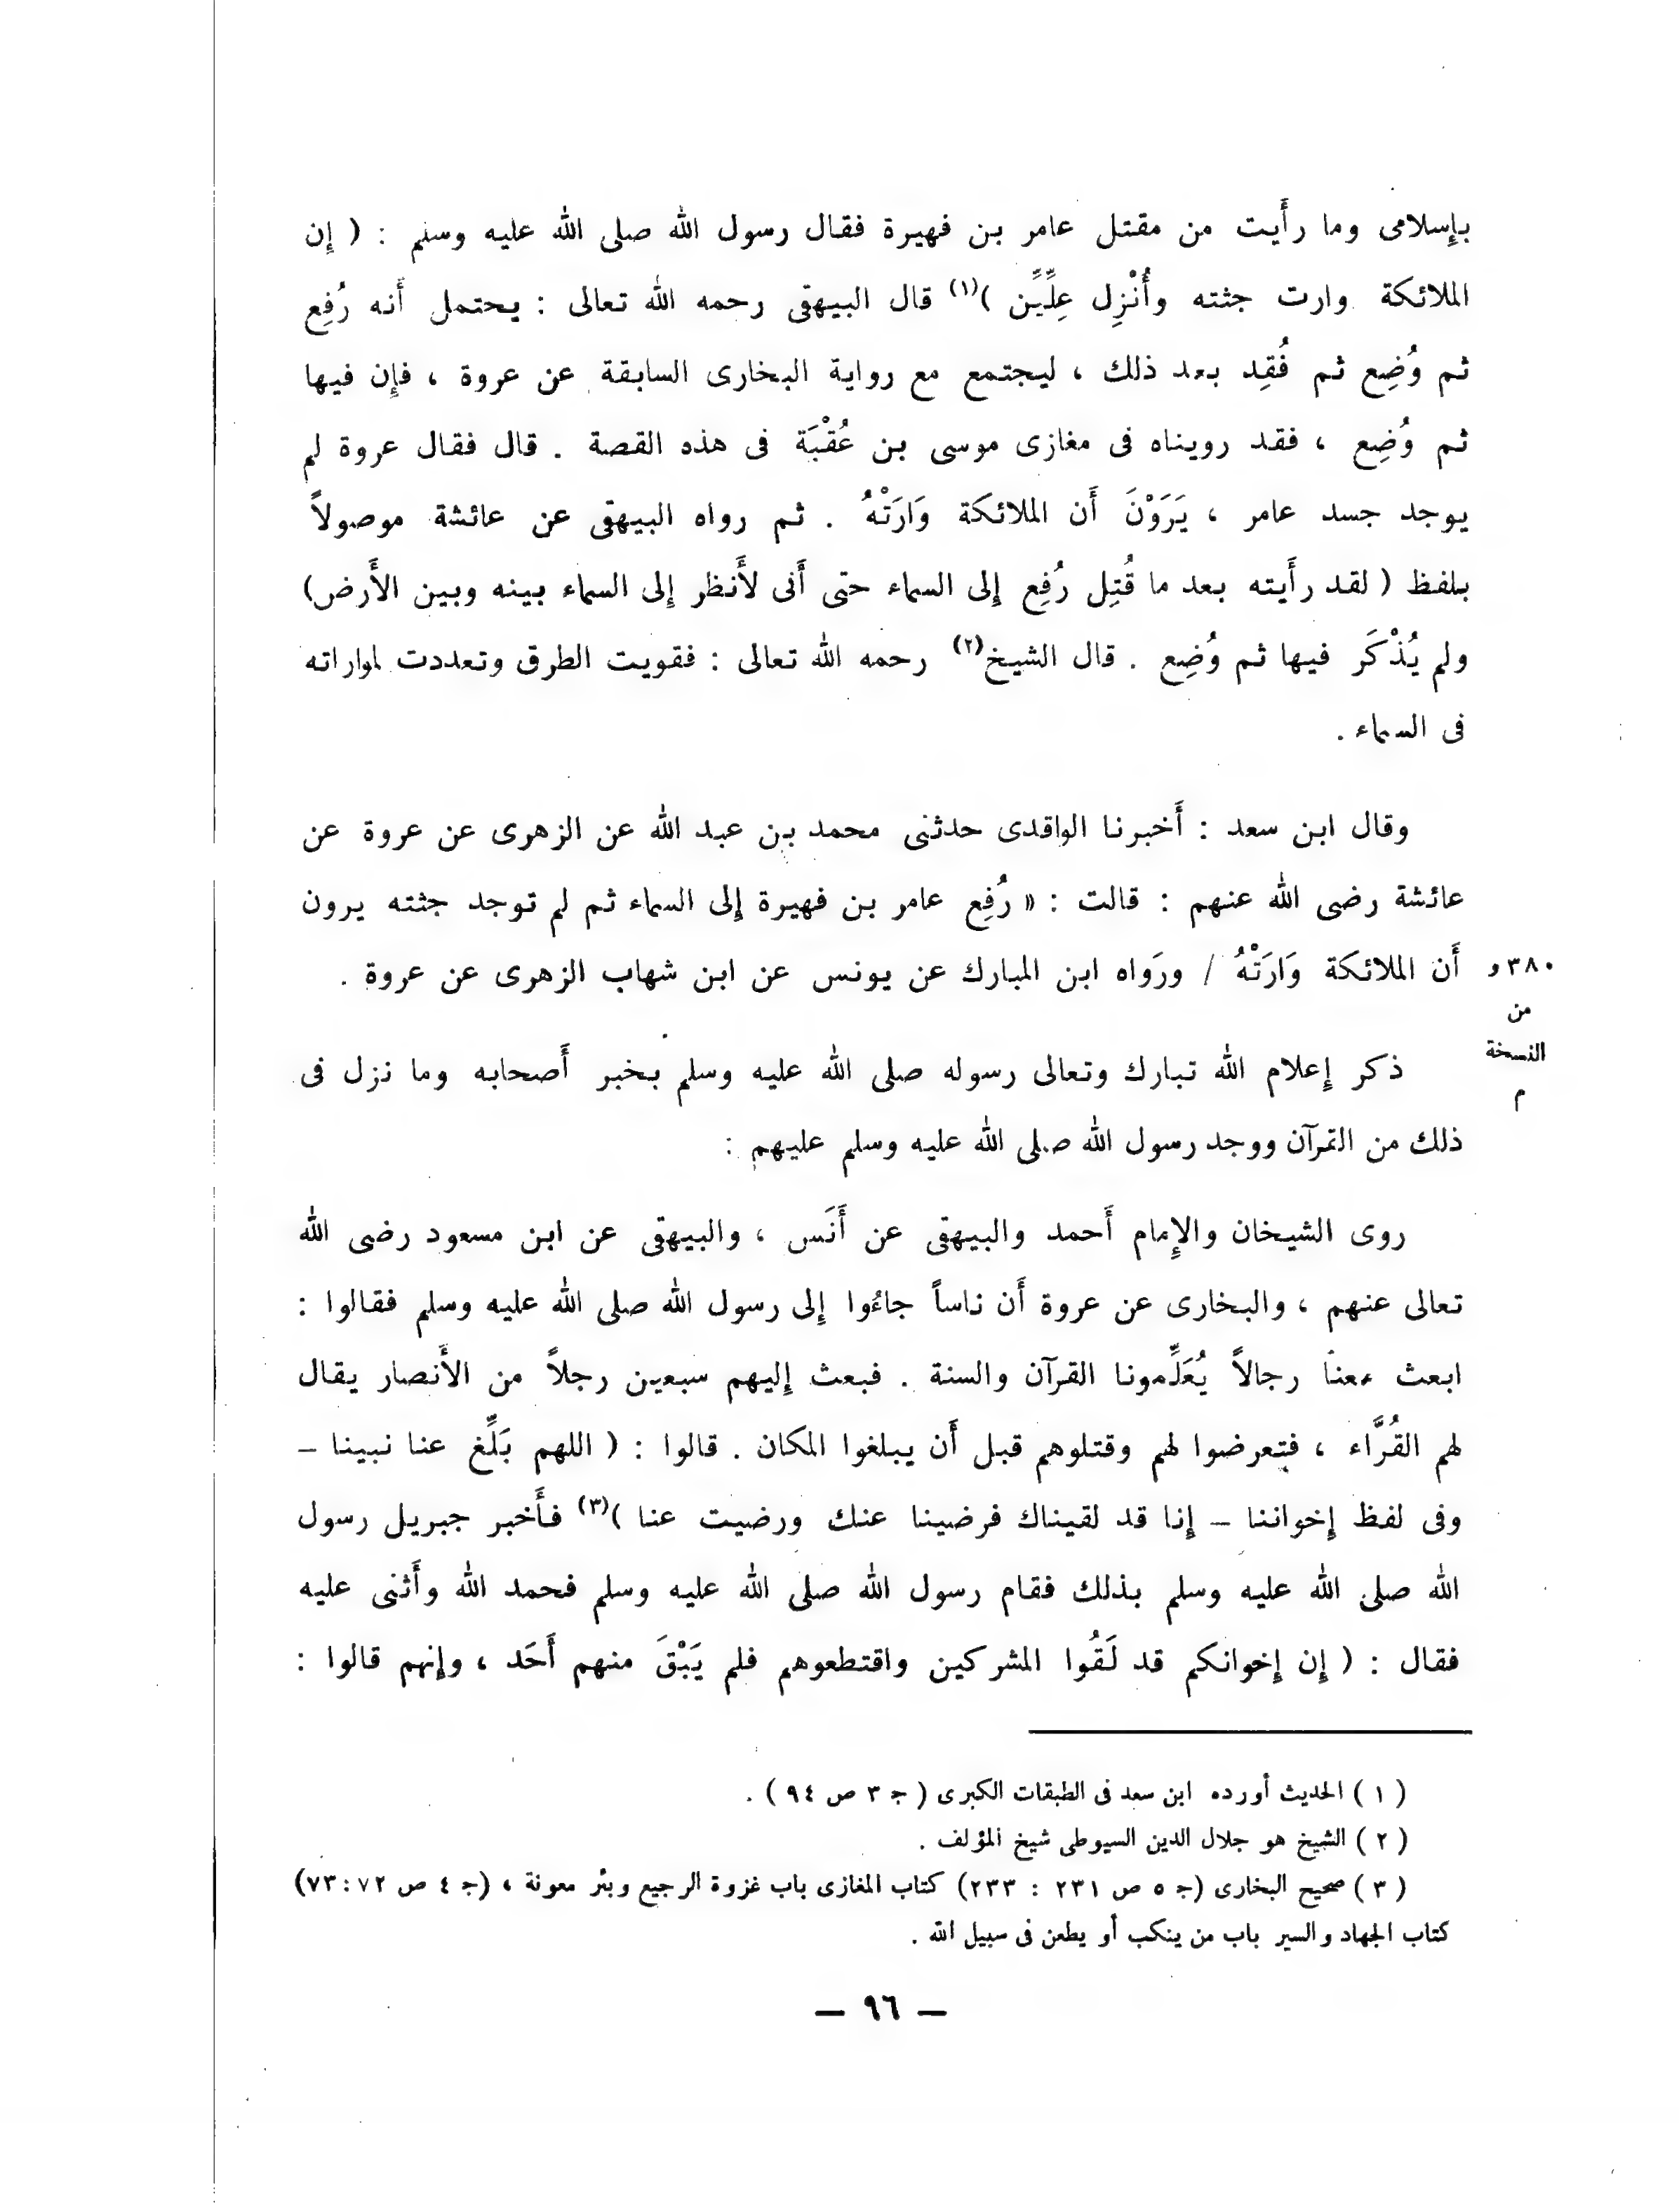 بإسلامى وما رأَيت من مقتل عامر بن فهيرة فقال رسول الله صلى الله عليه وسلم : ( إن
الملائكة وارت جثته وأُنْزِل عِلِّيِّين )(١) قال البيهقى رحمه الله تعالى : يحتمل أَنه رُفِع
ثم وُضِع ثم فُقِد بعد ذلك ، ليجتمع مع رواية البخارى السابقة عن عروة ، فإن فيها
ثم وُضِع ، فقد رويناه فى مغازى موسى بن عُقْبَة فى هذه القصة . قال فقال عروة لم
يوجد جسد عامر ، يَرَوْنَ أَن الملائكة وَارَتْهُ . ثم رواه البيهقى عن عائشة موصولاً
بلفظ ( لقد رأَيته بعد ما قُتِل رُفِع إلى السماء حتى أَنى لأَنظر إلى السماء بينه وبين الأَرض)
ولم يُذْكَر فيها ثم وُضِع . قال الشيخ(٢) رحمه الله تعالى : فقويت الطرق وتعددت لمواراته
فى السماء .
وقال ابن سعد : أَخبرنا الواقدى حدثنى محمد بن عبد الله عن الزهرى عن عروة عن
عائشة رضى الله عنهم : قالت : « رُفِع عامر بن فهيرة إلى السماء ثم لم توجد جثته يرون
أَن الملائكة وَارَتْهُ / ورَواه ابن المبارك عن يونس عن ابن شهاب الزهرى عن عروة .
٣٨٠ و
من
النسخة
م
ذكر إعلام الله تبارك وتعالى رسوله صلى الله عليه وسلم بخبر أَصحابه وما نزل فى
ذلك من القرآن ووجد رسول الله صلى الله عليه وسلم عليهم :
روى الشيخان والإمام أَحمد والبيهقى عن أَنَس ، والبيهقى عن ابن مسعود رضى الله
تعالى عنهم ، والبخارى عن عروة أَن ناساً جاءُوا إلى رسول الله صلى الله عليه وسلم فقالوا :
ابعث معنا رجالاً يُعَلِّمونا القرآن والسنة . فبعث إليهم سبعين رجلاً من الأَنصار يقال
لهم القُرَّاء ، فتعرضوا لهم وقتلوهم قبل أَن يبلغوا المكان . قالوا : ( اللهم بَلِّغ عنا نبينا –
وفى لفظ إخواننا – إنا قد لقيناك فرضينا عنك ورضيت عنا )(٣) فأَخبر جبريل رسول
الله صلى الله عليه وسلم بذلك فقام رسول الله صلى الله عليه وسلم فحمد الله وأَثنى عليه
فقال : ( إن إخوانكم قد لَقُوا المشركين واقتطعوهم فلم يَبْقَ منهم أَحَد ، وإنهم قالوا :
( ١ ) الحديث أورده ابن سعد فى الطبقات الكبرى ( ج ٣ ص ٩٤ ) .
( ٢ ) الشيخ هو جلال الدين السيوطى شيخ المؤلف .
( ٣ ) صحيح البخارى (ج ٥ ص ٢٣١ : ٢٣٣) كتاب المغازى باب غزوة الرجيع وبئر معونة ، (ج ٤ ص ٧٢ : ٧٣)
كتاب الجهاد والسير باب من ينكب أو يطعن فى سبيل الله .
– ٩٦ –